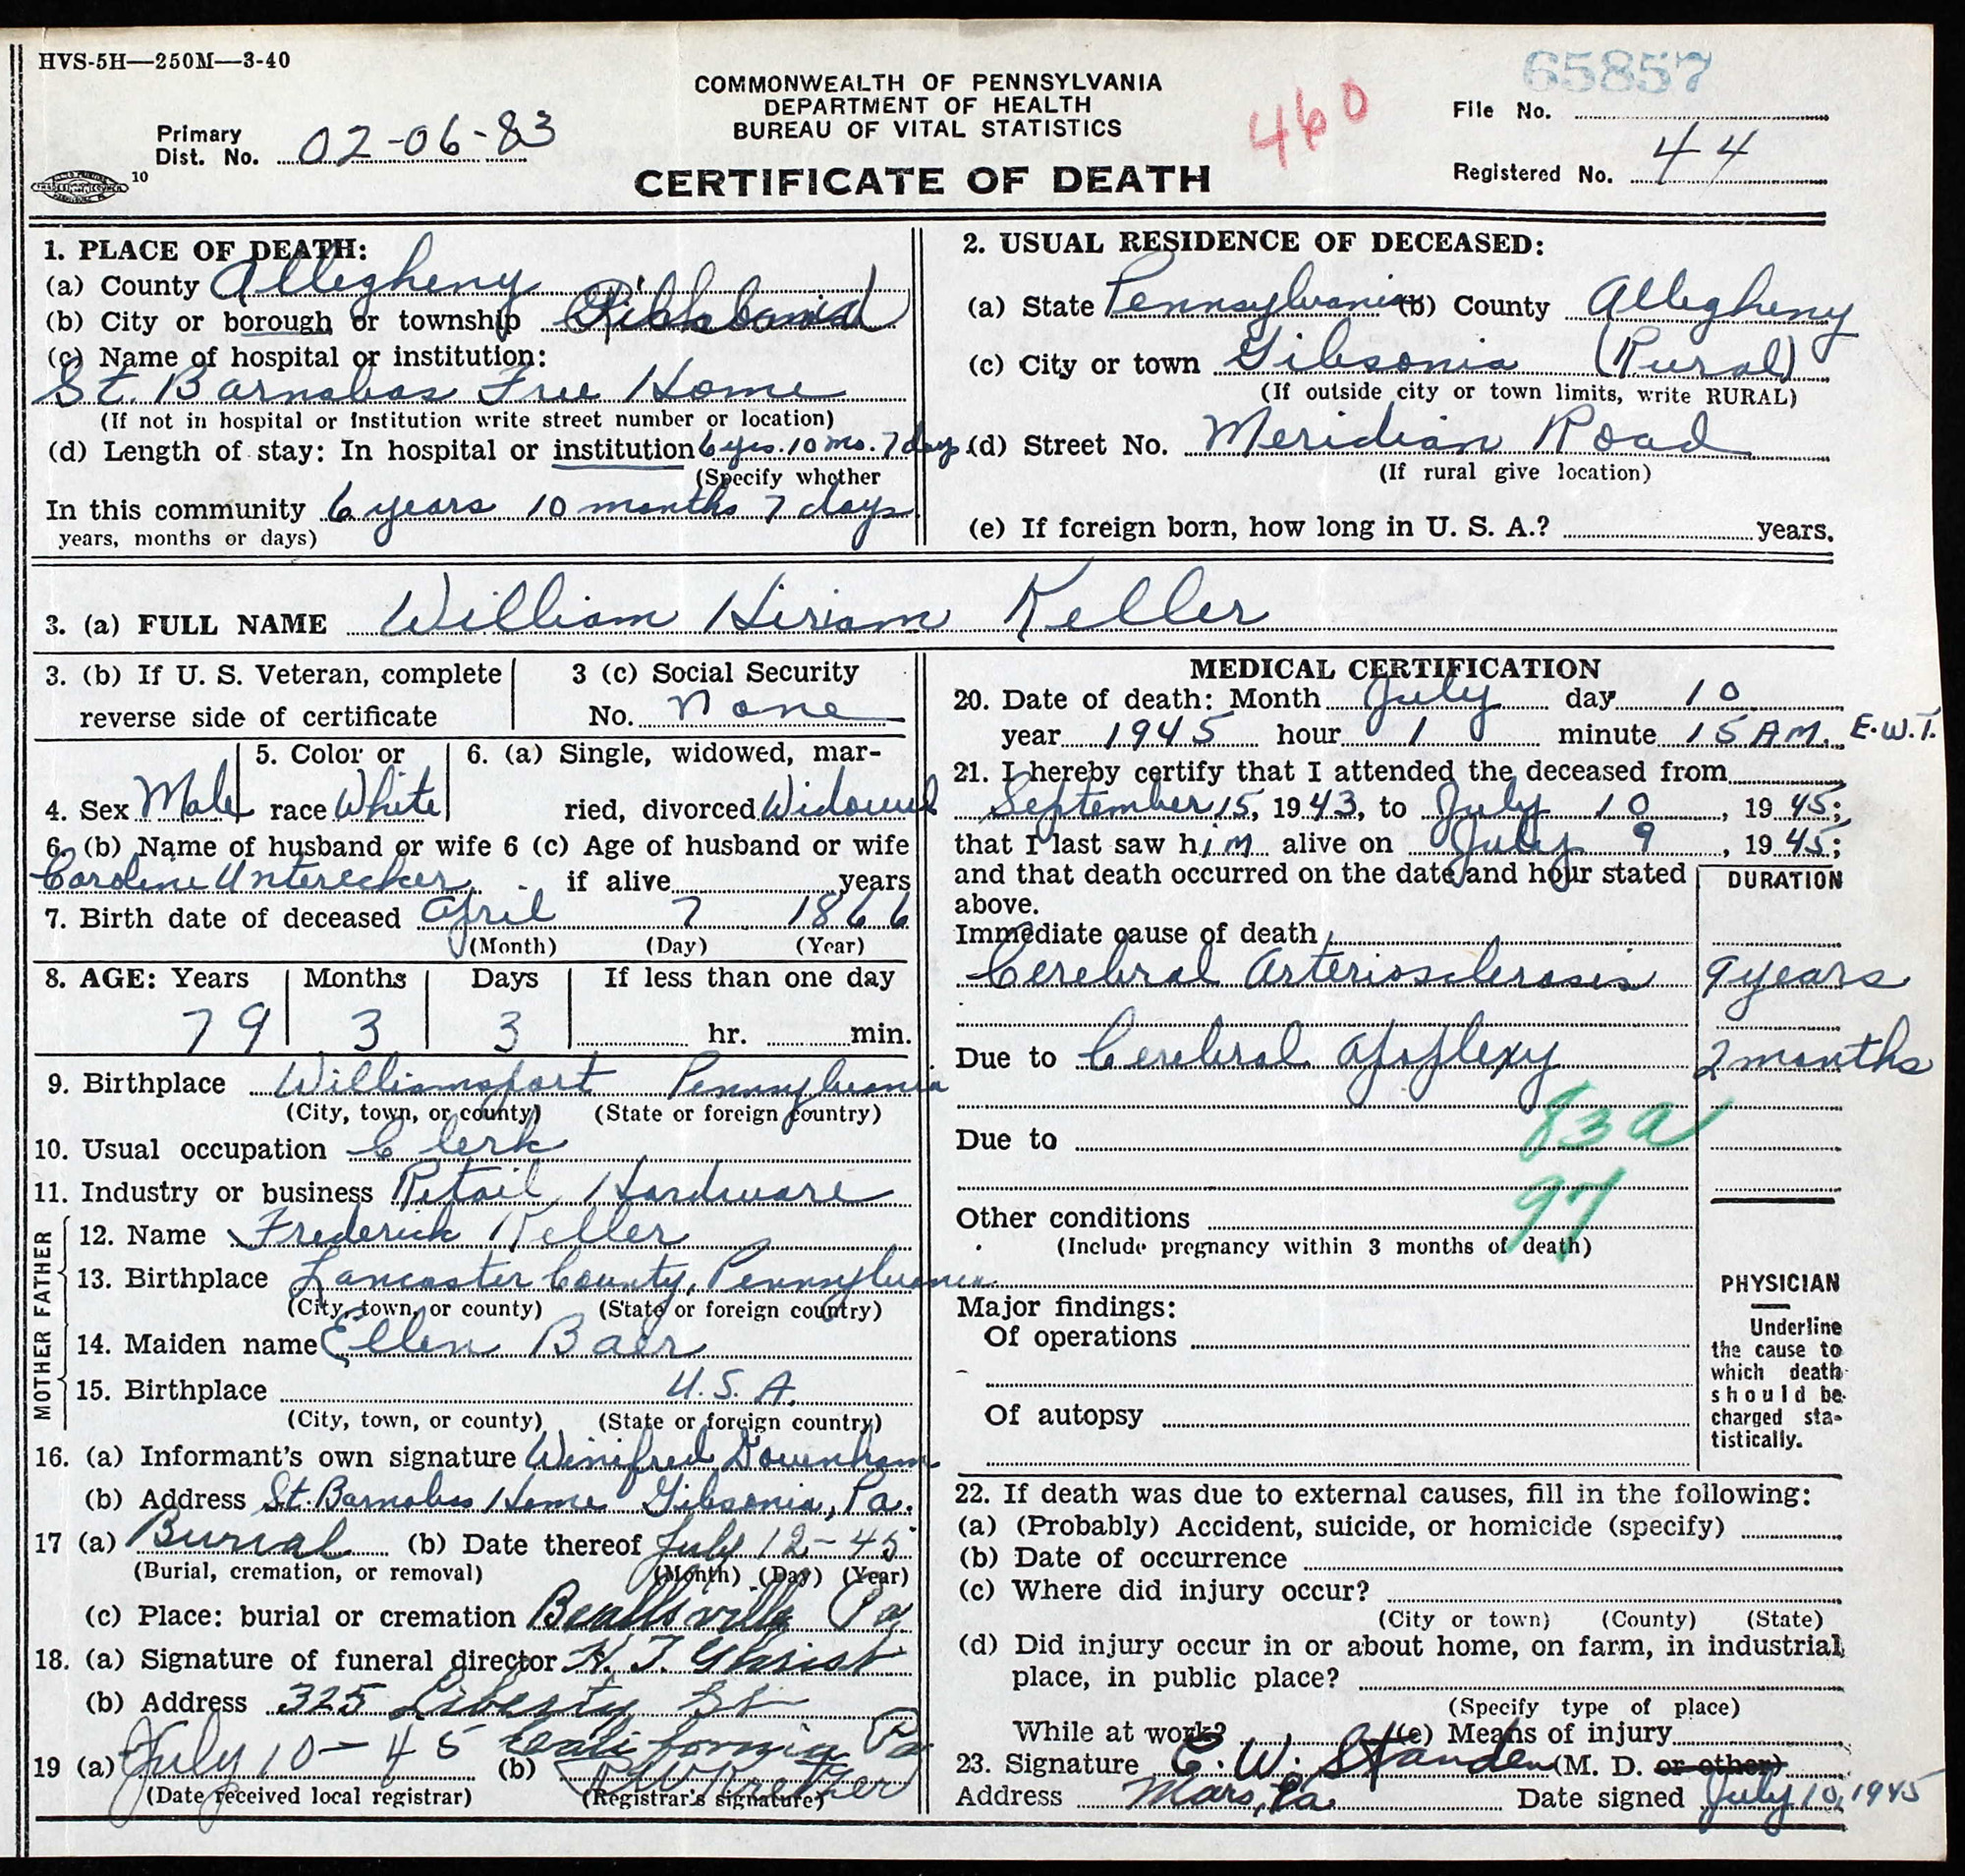 HVS-5H—250M—3-40
COMMONWEALTH OF PENNSYLVANIA
DEPARTMENT OF HEALTH
BUREAU OF VITAL STATISTICS
CERTIFICATE OF DEATH
Primary
Dist. No. 02-06-83
10
460
65857
File No.
Registered No. 44
1. PLACE OF DEATH:
(a) County Allegheny
(b) City or borough or township
(c) Name of hospital or institution:
St. Barnabas Free Home
(If not in hospital or institution write street number or location)
(d) Length of stay: In hospital or institution 6 yrs. 10 mo. 7 days
(Specify whether
In this community 6 years 10 months 7 days
years, months or days)
2. USUAL RESIDENCE OF DECEASED:
(a) State Pennsylvania (b) County Allegheny
(c) City or town Gibsonia (Rural)
(If outside city or town limits, write RURAL)
(d) Street No. Meridian Road
(If rural give location)
(e) If foreign born, how long in U. S. A.? years.
3. (a) FULL NAME William Hiriam Keller
3. (b) If U. S. Veteran, complete
reverse side of certificate
3 (c) Social Security
No. None
4. Sex Male
5. Color or
race White
6. (a) Single, widowed, mar-
ried, divorced Widowed
6. (b) Name of husband or wife
Caroline Unterecker
6 (c) Age of husband or wife
if alive years
7. Birth date of deceased April 7 1866
(Month) (Day) (Year)
8. AGE: Years Months Days If less than one day
79 3 3 hr. min.
9. Birthplace Williamsport Pennsylvania
(City, town, or county) (State or foreign country)
10. Usual occupation Clerk
11. Industry or business Retail Hardware
FATHER
12. Name Frederick Keller
13. Birthplace Lancaster County, Pennsylvania
(City, town, or county) (State or foreign country)
MOTHER
14. Maiden name Ellen Baer
15. Birthplace U.S.A.
(City, town, or county) (State or foreign country)
16. (a) Informant's own signature Winifred Downham
(b) Address St. Barnabas Home Gibsonia, Pa.
17 (a) Burial (b) Date thereof July 12-45
(Burial, cremation, or removal) (Month) (Day) (Year)
(c) Place: burial or cremation Beallsville Pa
18. (a) Signature of funeral director H. T.
(b) Address 325 Liberty St
California Pa
19 (a) July 10-45 (b)
(Date received local registrar) (Registrar's signature)
MEDICAL CERTIFICATION
20. Date of death: Month July day 10
year 1945 hour 1 minute 15 AM. E.W.T.
21. I hereby certify that I attended the deceased from
September 15, 1943, to July 10, 1945;
that I last saw him alive on July 9, 1945;
and that death occurred on the date and hour stated
above.
DURATION
Immediate cause of death
Cerebral Arteriosclerosis 9 years
Due to Cerebral Apoplexy 2 months
83a
Due to
97
Other conditions
(Include pregnancy within 3 months of death)
Major findings:
Of operations
Of autopsy
PHYSICIAN
Underline
the cause to
which death
should be
charged sta-
tistically.
22. If death was due to external causes, fill in the following:
(a) (Probably) Accident, suicide, or homicide (specify)
(b) Date of occurrence
(c) Where did injury occur?
(City or town) (County) (State)
(d) Did injury occur in or about home, on farm, in industrial
place, in public place?
(Specify type of place)
While at work? (e) Means of injury
23. Signature C. W. Standen (M. D. or other)
Address Mars, Pa Date signed July 10, 1945